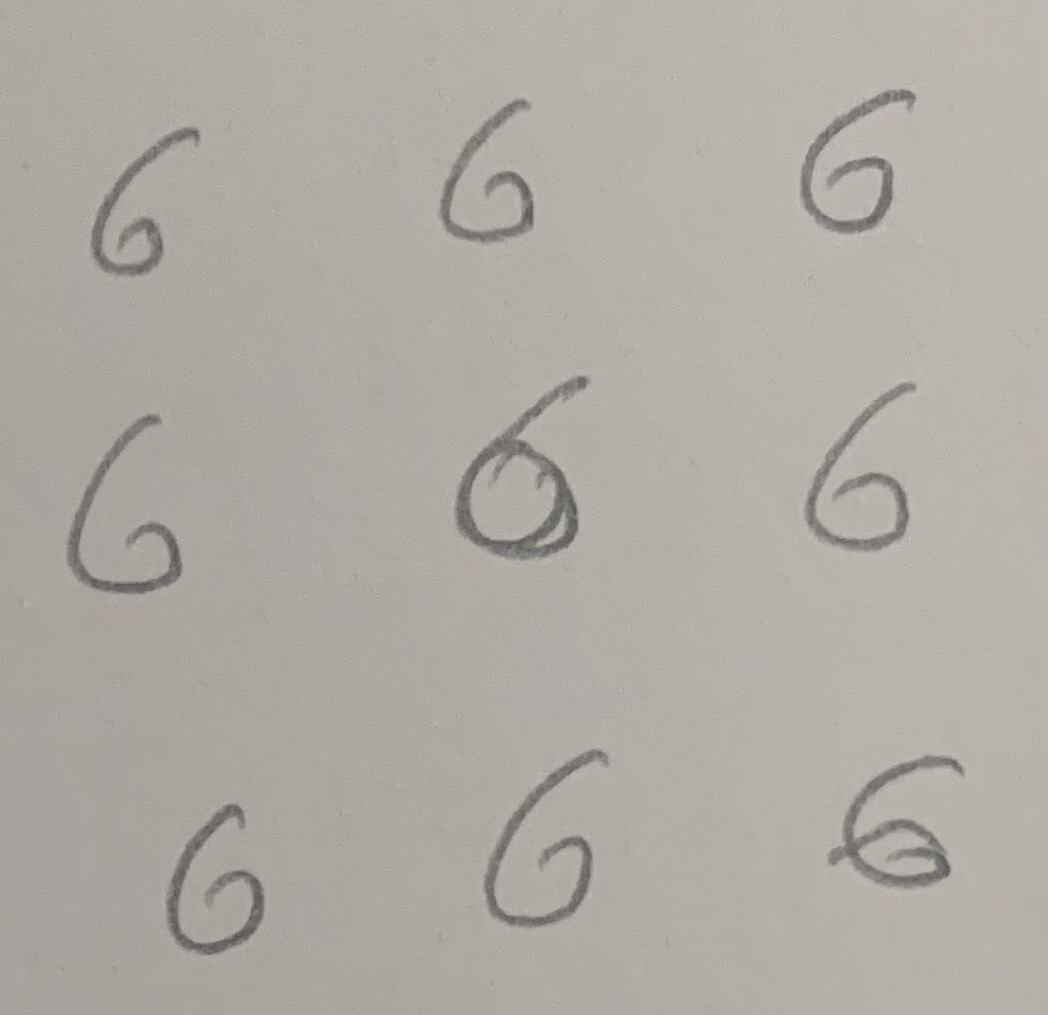 6 6 6
6 6 6
6 6 6